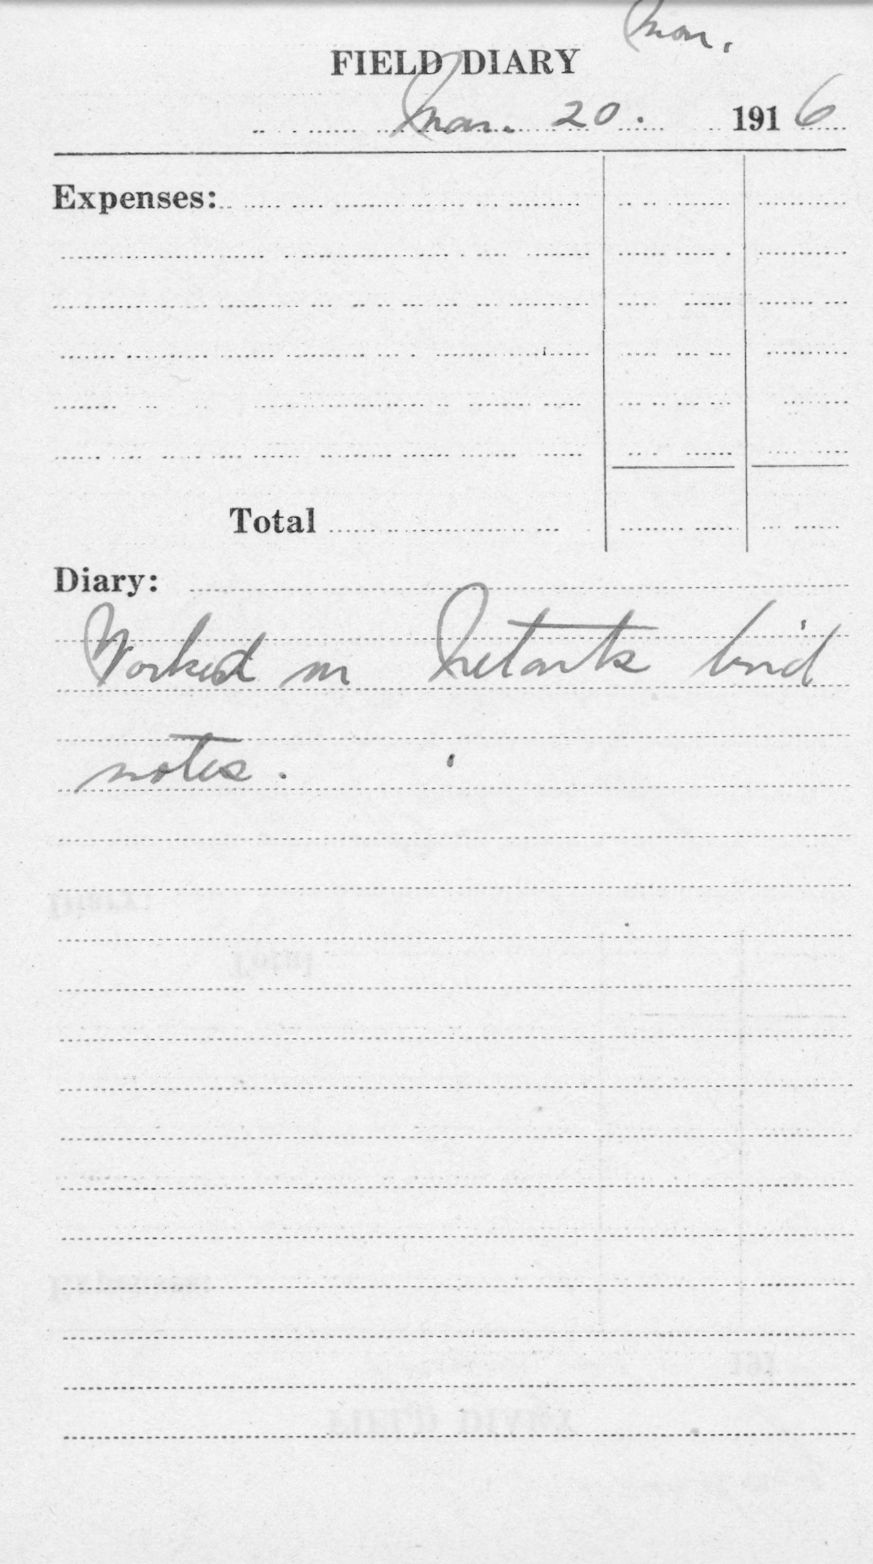 Mon.
FIELD DIARY
Mar. 20. 1916
Expenses:
Total
Diary:
Worked on Netarts bird
notes.